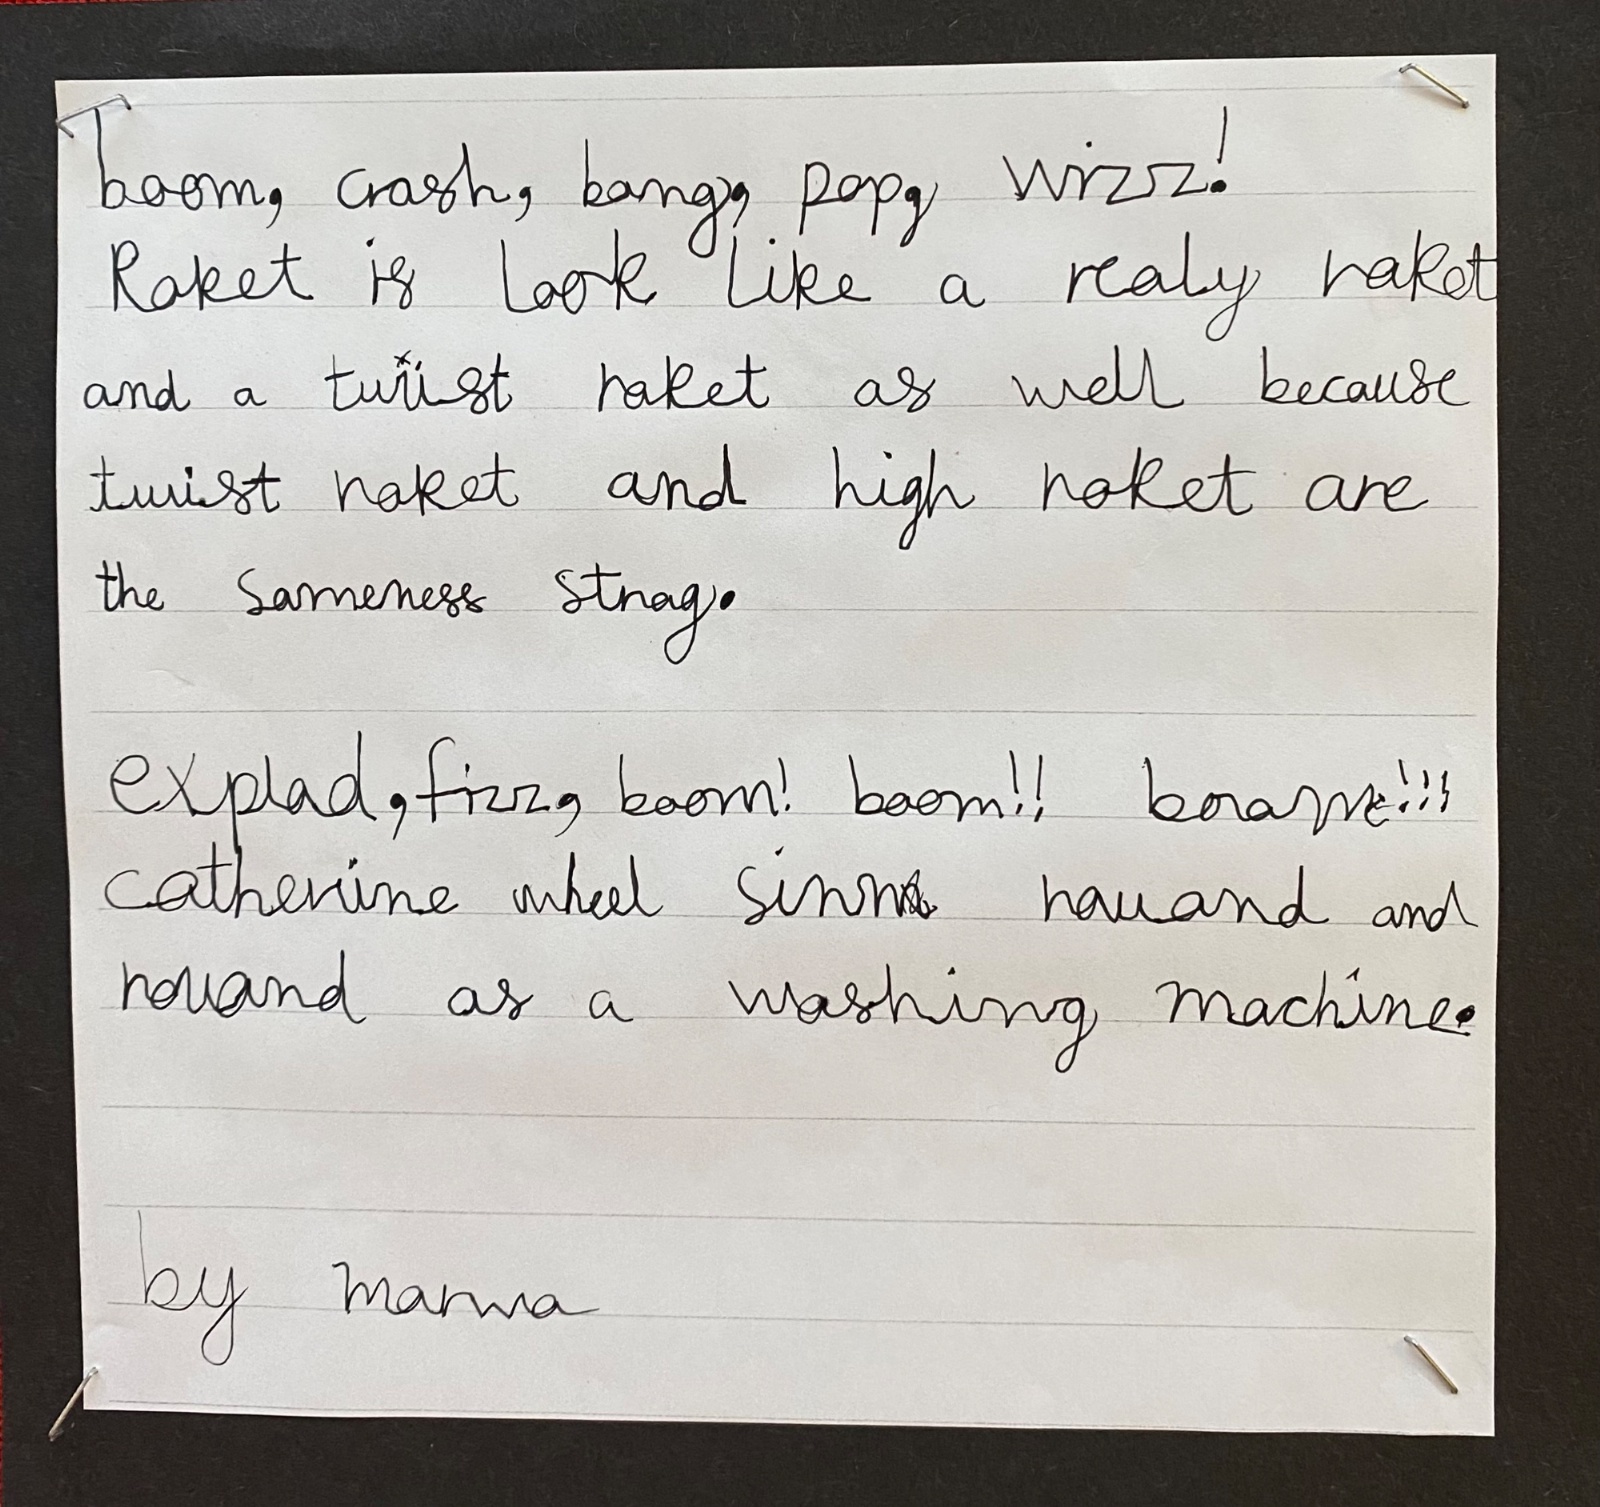 boom, crash, bang, pop, wizz!
Roket is look like a realy roket
and a twiist roket as well because
twist roket and high roket are
the sameness strag.
explad, fizz, boom! boom!! !!!
catherine wheel sinn rauand and
rouand as a washing machine.
by marwa